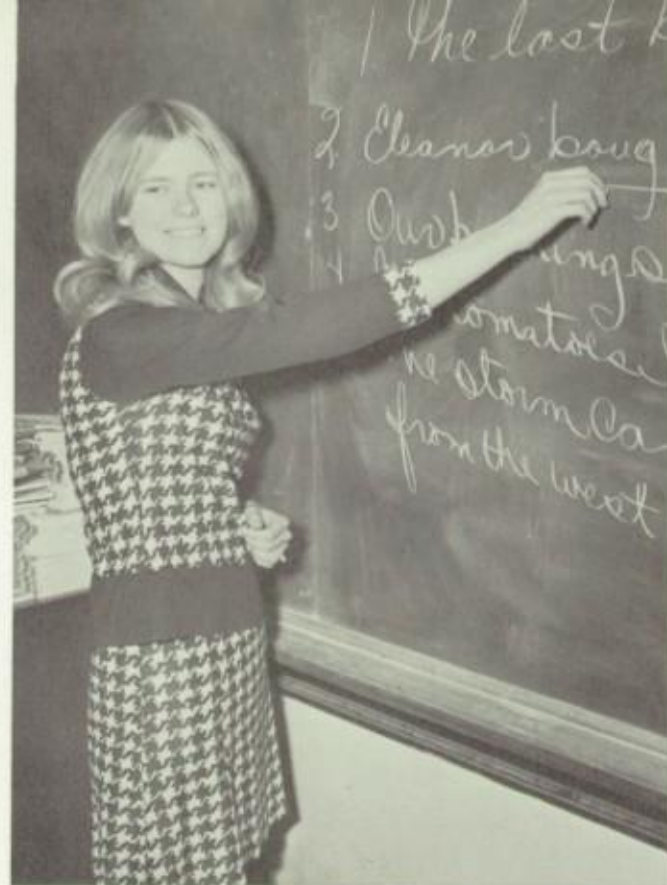 1 The last
2 Eleanor boug
3 Our
4
tomatoes
storm Ca
from the west